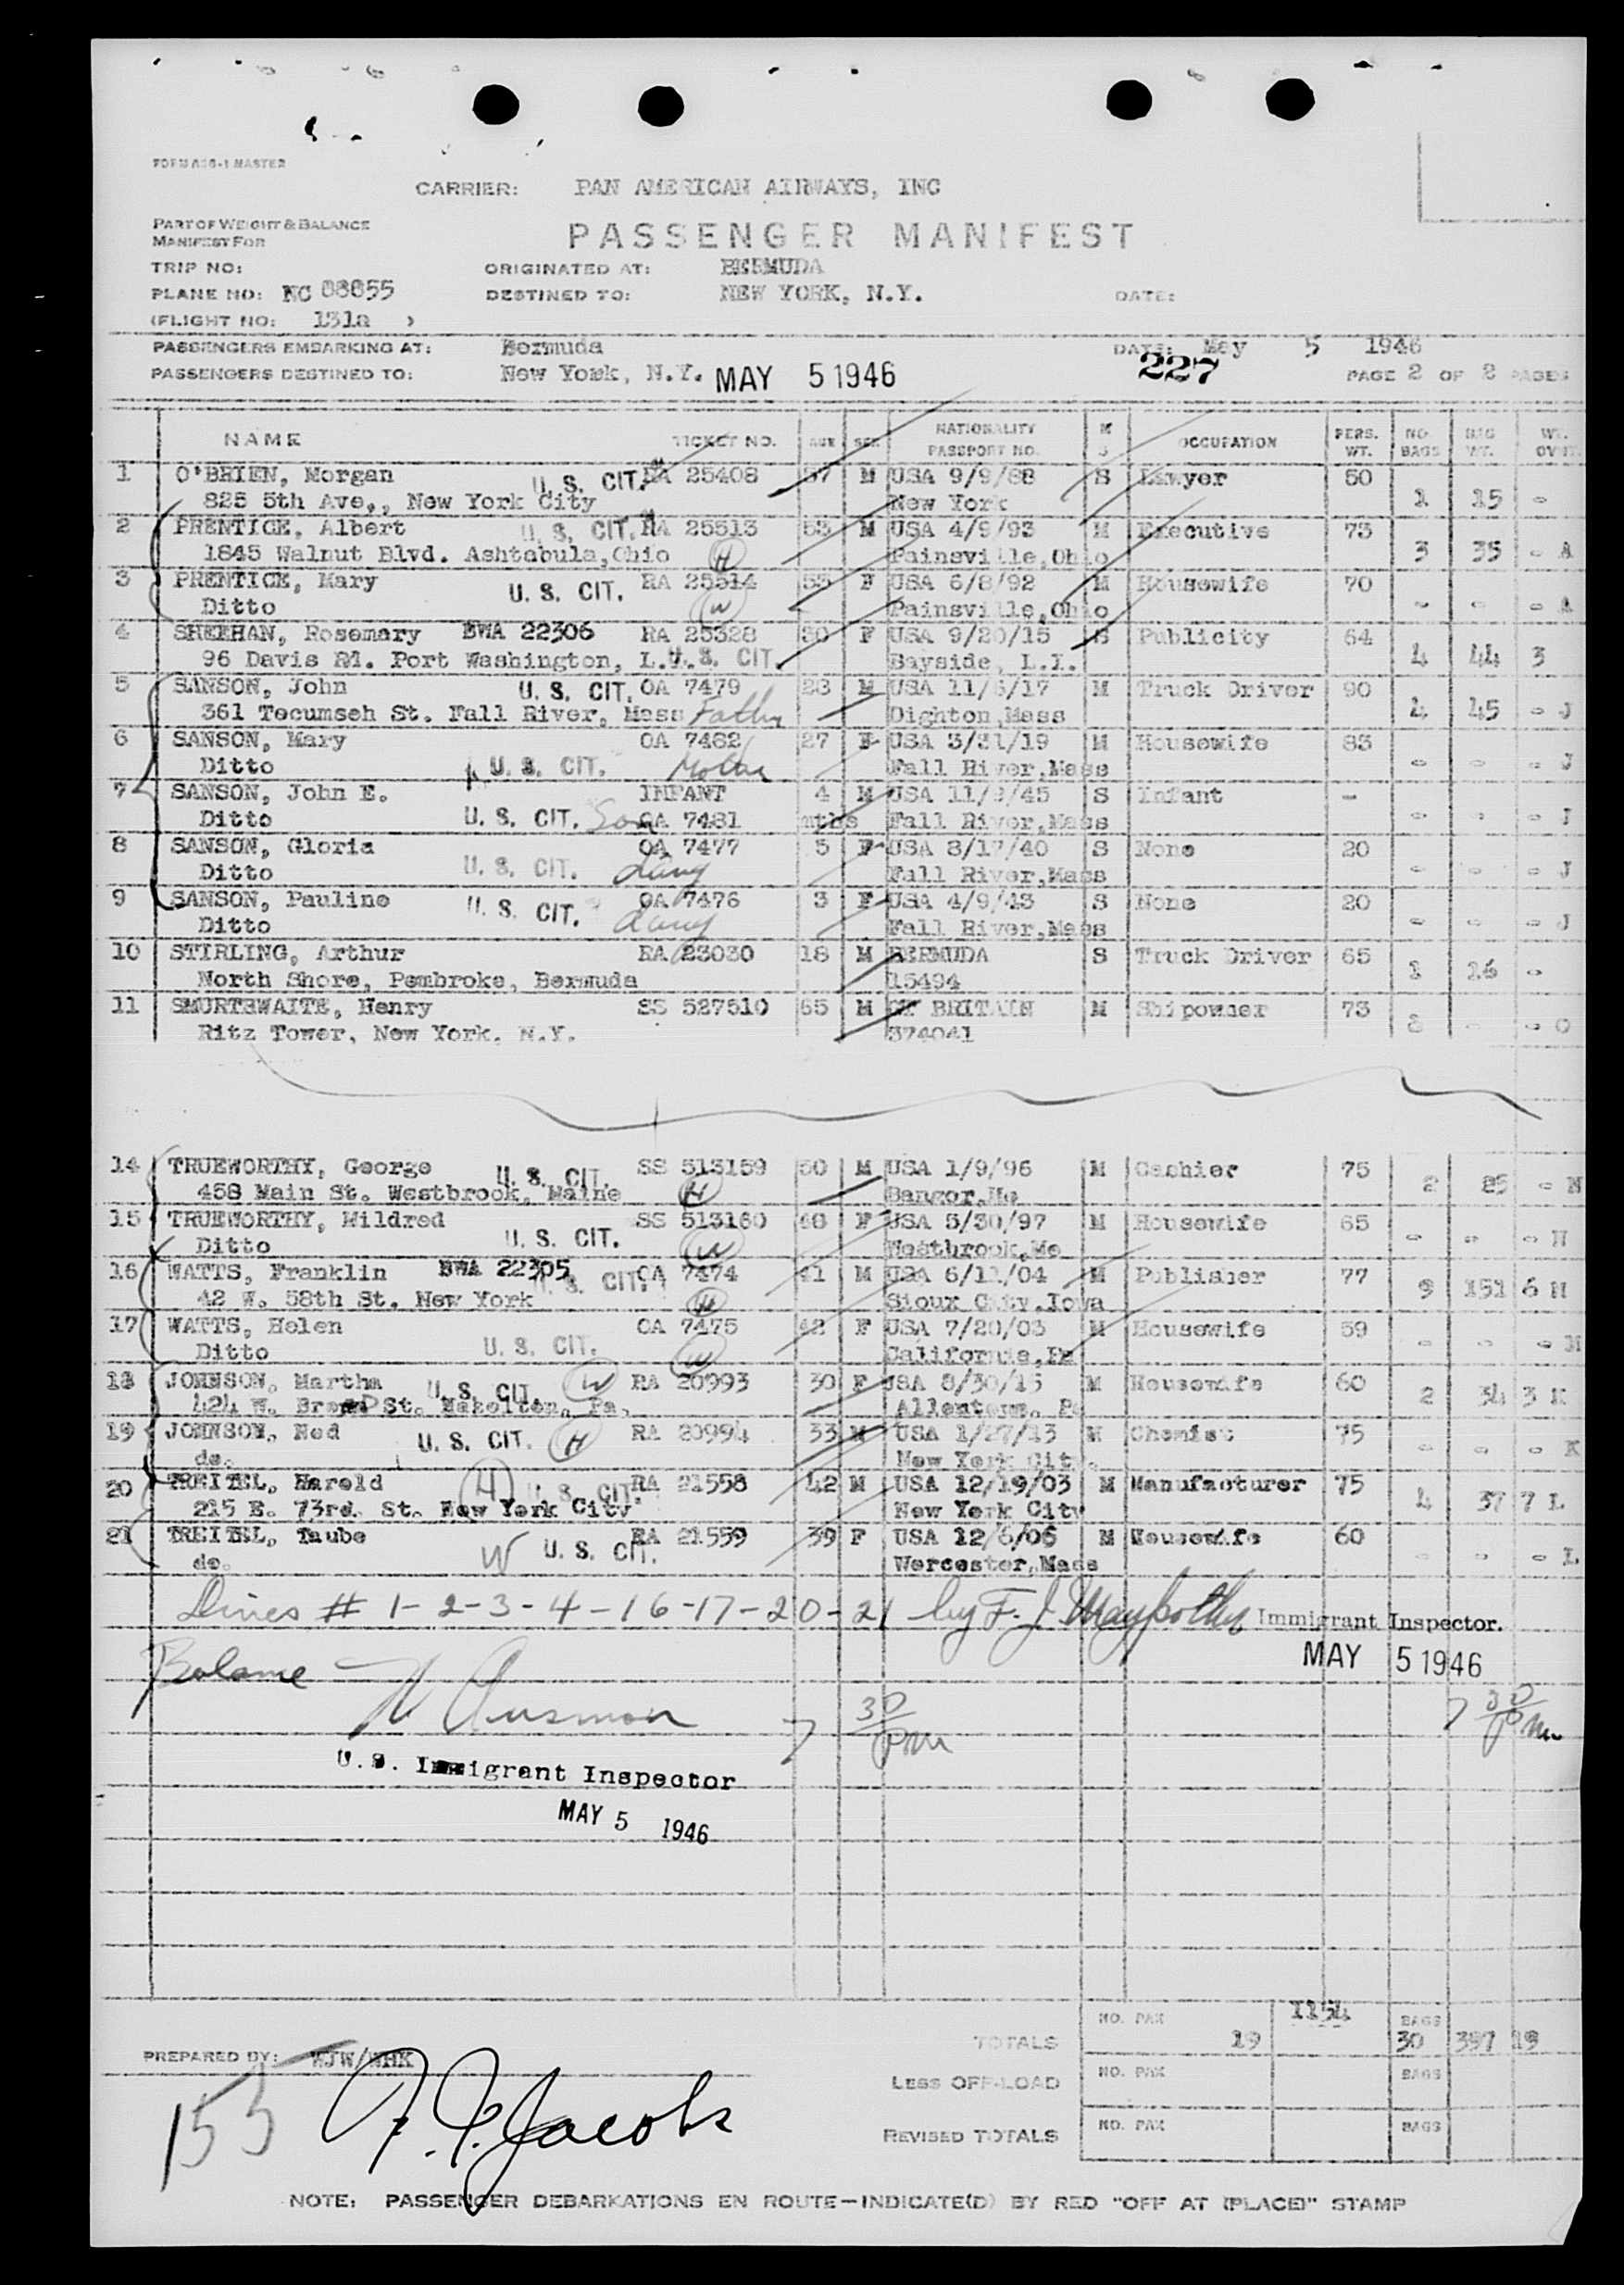 FORM A26-1 MASTER
CARRIER: PAN AMERICAN AIRWAYS, INC
PART OF WEIGHT & BALANCE
MANIFEST FOR
PASSENGER MANIFEST
TRIP NO: ORIGINATED AT: BERMUDA
PLANE NO: NC 88855 DESTINED TO: NEW YORK, N.Y. DATE:
(FLIGHT NO: 131a )
PASSENGERS EMBARKING AT: Bermuda DATE: May 5 1946
227
PASSENGERS DESTINED TO: New York, N.Y. MAY 5 1946 PAGE 2 OF 2 PAGES
NAME TICKET NO. AGE SEX NATIONALITY PASSPORT NO. M S OCCUPATION PERS. WT. NO. BAGS BAG WT. WT. OVER
1 O'BRIEN, Morgan U. S. CIT. RA 25408 57 M USA 9/9/88 S Lawyer 50
825 5th Ave,, New York City New York 1 15 -
2 PRENTICE, Albert U. S. CIT. RA 25513 53 M USA 4/9/93 M Executive 73
1845 Walnut Blvd. Ashtabula,Ohio H Painsville,Ohio 3 35 - A
3 PRENTICE, Mary U. S. CIT. RA 25514 53 F USA 6/8/92 M Housewife 70
Ditto W Painsville,Ohio - - - A
4 SHEEHAN, Rosemary BWA 22306 RA 25328 30 F USA 9/20/15 S Publicity 64
96 Davis Rd. Port Washington, L.I. U. S. CIT. Bayside, L.I. 4 44 3
5 SANSON, John U. S. CIT. OA 7479 28 M USA 11/6/17 M Truck Driver 90
361 Tecumseh St. Fall River, Mass Father Dighton,Mass 4 45 - J
6 SANSON, Mary OA 7482 27 F USA 3/31/19 M Housewife 83
Ditto U. S. CIT. Mother Fall River,Mass - - - J
7 SANSON, John E. INFANT 4 M USA 11/2/45 S Infant -
Ditto U. S. CIT. Son OA 7481 mths Fall River,Mass - - - J
8 SANSON, Gloria OA 7477 5 F USA 8/17/40 S None 20
Ditto U. S. CIT. Fall River,Mass - - - J
9 SANSON, Pauline OA 7476 3 F USA 4/9/43 S None 20
Ditto U. S. CIT. Fall River,Mass - - - J
10 STIRLING, Arthur RA 23030 18 M BERMUDA S Truck Driver 65
North Shore, Pembroke, Bermuda 15494 1 16 -
11 SMURTHWAITE, Henry SS 527510 65 M GT BRITAIN M Shipowner 73
Ritz Tower, New York, N.Y. 374041 3 - - O
14 TRUEWORTHY, George U. S. CIT. SS 513159 50 M USA 1/9/96 M Cashier 75
458 Main St. Westbrook, Maine H Bangor,Me 2 25 - N
15 TRUEWORTHY, Mildred SS 513160 48 F USA 5/30/97 M Housewife 65
Ditto U. S. CIT. W Westbrook,Me - - - N
16 WATTS, Franklin BWA 22305 U. S. CIT. OA 7474 41 M USA 6/11/04 M Publisher 77
42 W. 58th St. New York H Sioux City,Iowa 9 151 6 M
17 WATTS, Helen OA 7475 42 F USA 7/20/03 M Housewife 59
Ditto U. S. CIT. W California,Pa - - - M
18 JOHNSON, Martha U. S. CIT. W RA 20993 30 F USA 8/30/15 M Housewife 60
424 W. Broad St. Pa. Allentown, Pa 2 34 3 K
19 JOHNSON, Ned U. S. CIT. H RA 20994 33 M USA 1/27/13 M Chemist 75
do. New York City. - - - K
20 TREITEL, Harold H U. S. CIT. RA 21558 42 M USA 12/19/03 M Manufacturer 75
215 E. 73rd. St. New York City New York City 4 37 7 L
21 TREITEL, Taube RA 21559 39 F USA 12/6/06 M Housewife 60
do. W U. S. CIT. Worcester,Mass - - - L
Lines # 1-2-3-4-16-17-20-21 by F. J. Immigrant Inspector.
MAY 5 1946
Balance
7 30 pm 7 30 pm
U.S. Immigrant Inspector
MAY 5 1946
TOTALS NO. PAX 19 1154 BAGS 30 397 19
PREPARED BY: WJW/WHK
LESS OFF-LOAD NO. PAX BAGS
155 Jacobs
REVISED TOTALS NO. PAX BAGS
NOTE: PASSENGER DEBARKATIONS EN ROUTE—INDICATE(D) BY RED "OFF AT (PLACE)" STAMP